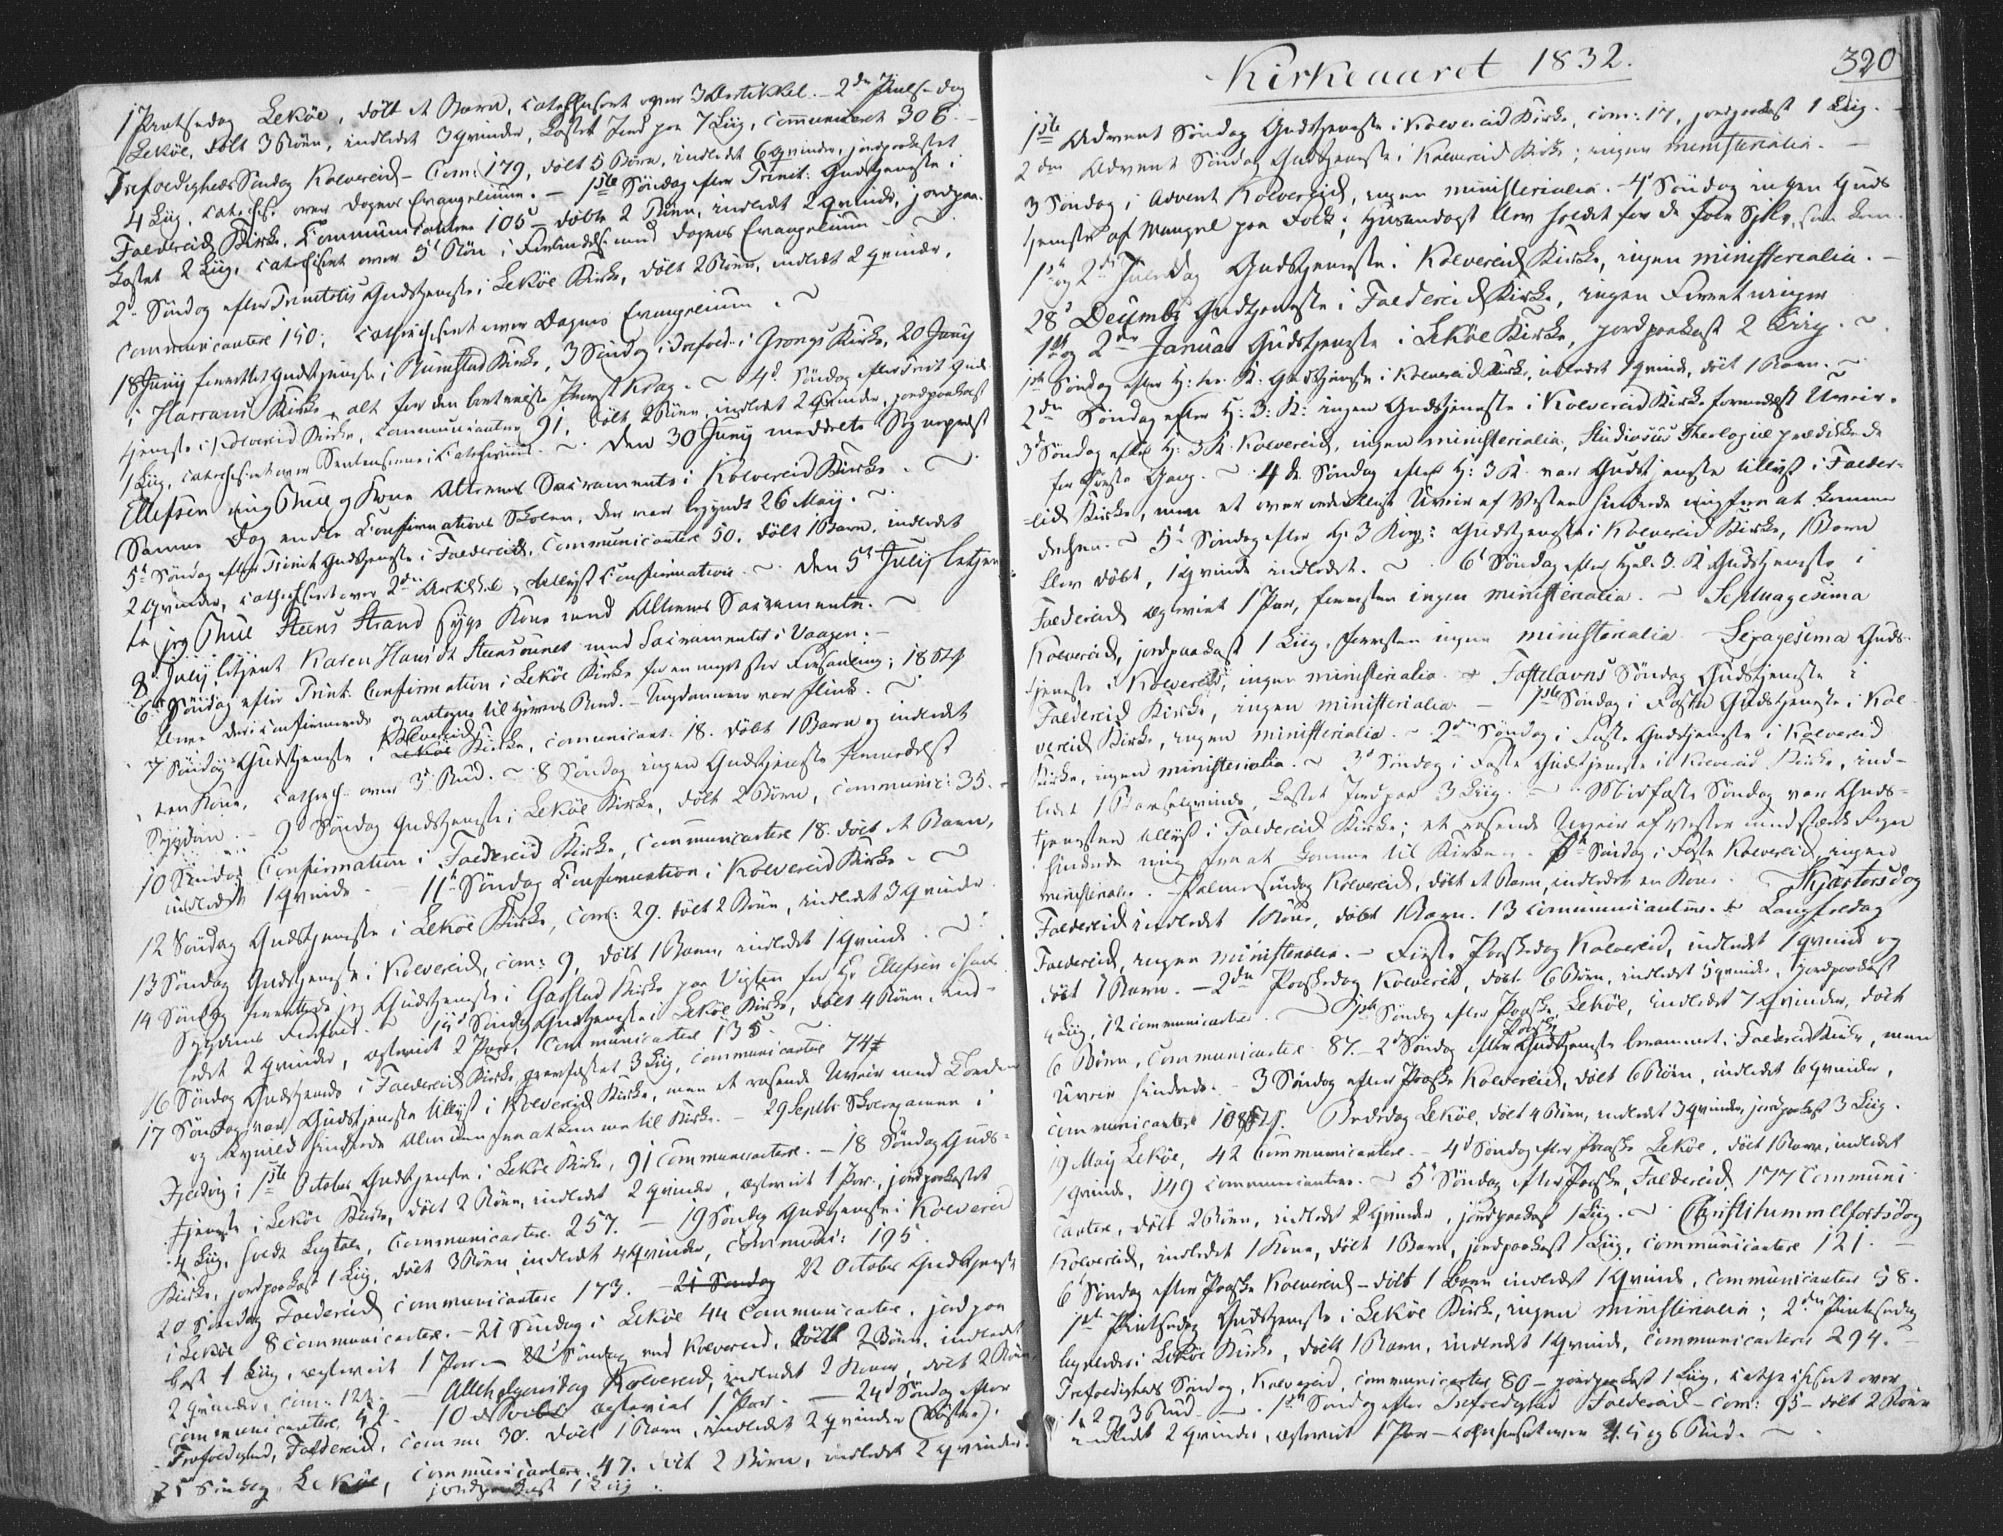 1 Pintsedag Lekøe, døbt et Barn, catechiseret over 3 Artikkel. – 2den Pintsedag
Lekøe, døbt 3 Børn, indledet 3 Qvinder, kastet Jord paa 7 Liig, communiceret 306. –
Trefoldigheds Søndag Kolvereid – Com: 179, døbt 5 Børn, indledt 6 Qvinder, jordpaakastet
4 Liig, catechs. over Dagens Evangelium. – 1ste Søndag efter Trinit: Gudstjeneste i
Foldereid Kirke. Communicantere 105 døbte 2 Børn, indledt 2 Qvinder, jordpaa-
kastet 2 Liig, catechiseret over 3d Bøn i Forbindelse med Dagens Evangelium
2d Søndag efter Trinitatis Gudstjeneste i Lekøe Kirke, døbt 2 Børn, indledt 2 Qvinder,
communicantere 150; catechiseret over Dagens Evangelium.
18 Juny forrettet Gudstjeneste i Kirke, 3 Søndag i Trefold: i Grongs Kirke, 20 Juny
i Harrans Kirke, alt for den Provst Krag. – 4d Søndag efter Trinit Guds-
tjeneste i Kolvereid Kirke, communicantere 91, døbt 2 Børn, indledt 2 Qvinder, jordpaakast
1 Liig, catechiseret over i Catechismus. – Den 30 Juny meddelte Sognepræst
Ellefsen mig og Kone Alterens Sacramente i Kolvereid Kirke.
Samme Dag endte Confirmations Skolen, der var begyndt 26 Maij.
5d Søndag efter Trinit Gudstjeneste i Foldereid, Communicantere 50, døbt 1 Barn, indledet
2 Qvinder, catechiseret over 2den Artikel, tillyst Confirmation. – Den 5d July betjen-
te jeg Steens Strand syge Kone med Alterens Sacramente. –
8d July betjent Karen Hansdt med Sacramentet i Vaagen. –
6d Søndag efter Trinit. Confirmation i Lekøe Kirke for en meget stor Forsamling; 18 Stk
Unge der confirmerede og antagne til Herrens Bord. – Ungdommen var flink.
7 Søndag Gudstjeneste i Kolvereid Kirke, comunicant. 18. døbt 1 Barn og indledet
een Kone, catech. over 3d Bud. – 8 Søndag ingen Gudstjeneste formedelst
Sygdom. – 9d Søndag Gudstjeneste i Lekøe Kirke, døbt 2 Børn, communic: 35.
10 Søndag Confirmation i Foldereid Kirke, communicantere 18. døbt et Barn,
indledet 1 Qvinde. – 11te Søndag Confirmation i Kolvereid Kirke.
12 Søndag Gudstjeneste i Lekøe Kirke, com: 29. døbt 2 Børn, indledt 3 Qvinder
13 Søndag Gudstjeneste i Kolvereid, com: 9, døbt 1 Barn, indledt 1 Qvinde.
14 Søndag forrettede jeg Gudstjeneste i Garstad Kirke paa Vigten for Hr Ellefsen i hans
Sygdoms Forfald. – 15d Søndag Gudstjeneste i Lekøe Kirke, døbt 4 Børn, ind-
ledt 2 Qvinder, ægteviet 2 Par, communicantere 135.
16 Søndag Gudstjeneste i Foldereid Kirke, 3 Liig, communicantere 74
17 Søndag var Gudstjeneste tillyst i Kolvereid Kirke, men et rasende Uveir med Torden
og Lynild hindrede Almuen fra at komme til Kirke. – 29 Septbr Skoleexamen i
1ste October Gudstjeneste i Lekøe Kirke, 91 Communicantere. – 18 Søndag Guds-
tjeneste i Lekøe Kirke, døbt 2 Børn, indledet 2 Qvinder, ægteviet 1 Par, jordpaakastet
4 Liig, Communicantere 257. – 19 Søndag Gudstjeneste i Kolvereid
Kirke, jordpaakast 1 Liig, døbt 3 Børn, indledt 4 Qvinder, communic: 195.
20 Søndag Foldereid communicantere 173. – 21 Søndag 22 October Gudstjeneste
i Lekøe 8 communicantere. – 21 Søndag i Lekøe 44 Communicantere, jordpaa-
kast 1 Liig, ægteviet 1 Par – 22 Søndag ved Kolvereid, døbt 2 Børn, indledet
2 Qvinder, com: 123. – Allehelgensdag Kolvereid, indledet 2 Koner, døbt 2 Børn
communicantere 42. – 10 ægteviet 1 Par. – 24d Søndag efter
Trefoldighed, Foldereid, commu 30. døbt 1 Barn, indledt 2 Qvinder.
25 Søndag Lekøe, communicantere 47. døbt 2 Børn, indledet 2 Qvinder.
jordpaakast 1 Liig.
Kirkeaaret 1832.
320
1ste Advent Søndag Gudstjeneste i Kolvereid Kirke, com: 17, jordpaakast 1 Liig. –
2den Advent Søndag Gudstjeneste i Kolvereid Kirke; ingen ministerialia. –
3 Søndag i Advent Kolvereid, ingen ministerialia. – 4d Søndag ingen Guds-
tjeneste af Mangel paa Folk; Husandagt blev holdet for de faae Sjæle, som kom.
1ste og 2d Juledag Gudstjeneste i Kolvereid Kirke, ingen ministerialia. –
28d Decembr Gudstjeneste i Foldereid Kirke, ingen Forretninger
1ste og 2den Januar Gudstjeneste i Lekøe Kirke, jordpaakast 2 Liig.
1ste Søndag efter H: tre K. Gudstjeneste i Kolvereid Kirke, indledet 1 Qvinde, døbt 1 Barn.
2den Søndag efter H: 3: K: ingen Gudstjeneste i Kolvereid Kirke formedelst Uveir.
3d Søndag efter H: 3 K. Kolvereid, ingen ministerialia, Studiosus Theologiæ prædikede
for første Gang. – 4de Søndag efter H: 3 K. var Gudstjeneste tillyst i Folder-
eid Kirke, men et overordentligt Uveir af Vesten hindrede mig fra at komme
derhen. – 5d Søndag efter H. 3 Kong: Gudstjeneste i Kolvereid Kirke, 1 Barn
blev døbt, 1 Qvinde indledet. – 6d Søndag efter Hel. 3. K Gudstjeneste i
Foldereid ægteviet 1 Par, forresten ingen ministerialia. – Septuagesima
Kolvereid, jordpaakast 1 Liig, forresten ingen ministerialia. – Sexagesima Guds-
tjeneste i Kolvereid, ingen ministerialia. – Fastelavns Søndag Gudstjeneste i
Foldereid Kirke, ingen ministerialia. – 1ste Søndag i Faste Gudstjeneste i Kol-
vereid Kirke, ingen ministerialia. – 2den Søndag i Faste Gudstjeneste i Kolvereid
Kirke, ingen ministerialia. – 3d Søndag i Faste Gudstjeneste i Kolvereid Kirke, ind-
ledet 1 Barselqvinde, kastet Jord paa 3 Liig. – Midfaste Søndag var Guds-
tjenesten tillyst i Foldereid Kirke; et rasende Uveir af Vester med stærk Regn
hindrede mig fra at komme til Kirken. – 5te Søndag i Faste Kolvereid, ingen
ministerial. – Palmesøndag Kolvereid, døbt et Barn, indledet en Kone. – Skjærtorsdag
Foldereid indledet 1 Kone, døbt 1 Barn. 13 communicantere. – Langfredag
Foldereid, ingen ministerialia. – Første Paaskedag Kolvereid, indledet 1 Qvinde og
døbt 1 Barn. – 2den Paaskedag Kolvereid, døbt 6 Børn, indledet 5 Qvinder, jordpaakast
4 Liig, 12 communicantere. – 1ste Søndag efter Paaske, Lekøe, indledet 7 Qvinder, døbt
6 Børn, Communicantere 87. – 2d Søndag efter Paaske Gudstjeneste berammet i Foldereid Kirke, men
Uveir hindrede. – 3 Søndag efter Paaske Kolvereid, døbt 6 Børn, indledet 6 Qvinder,
communicantere 108 Stk. Bededag Lekøe, døbt 4 Børn, indledet 3 Qvinder, jordpaakast 3 Liig.
19 Maij Lekøe, 42 Communicantere. – 4d Søndag efter Paaske Lekøe, døbt 1 Barn, indledet
1 Qvinde, 149 communicantere. – 5d Søndag efter Paaske, Foldereid, 177 Communi-
cantere, døbt 2 Børn, indledet 2 Qvinder, jordpaakast 1 Liig. – Christi himmelfartsdag
Kolvereid, indledet 1 Kone, døbt 1 Barn, jordpaakast 1 Liig, communicantere 121. –
6d Søndag efter Paaske Kolvereid – døbt 1 Barn indledt 1 Qvinde, communicantere 58.
1ste Pintsedag Gudstjeneste i Lekøe Kirke, ingen ministerialia; 2den Pintsedag
ligeledes i Lekøe Kirke, døbt 1 Barn, indledet 1 Qvinde, communicantere 294. –
Trefoldigheds Søndag, Kolvereid, communicantere 80 – jordpaakast 1 Liig, catechiseret over
1, 2 og 3 Bud – 1ste Søndag efter Trefoldighed Foldereid – com: 95 – døbt 2 Børn
indledt 2 Qvinder, ægteviet 1 Par – catechiseret over 4. 5 og 6 Bud. –